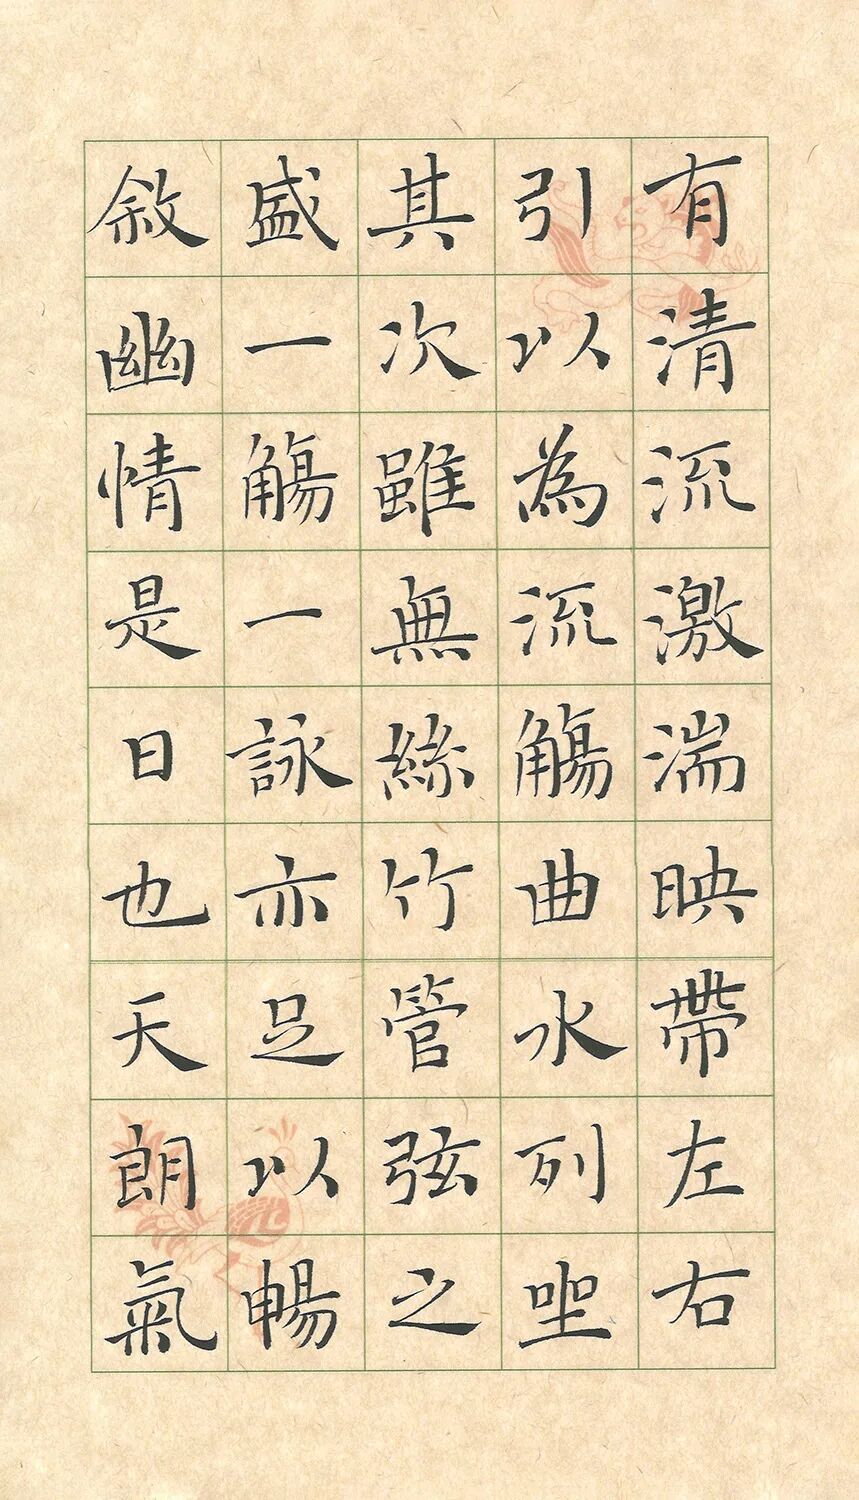 有清流激湍映帶左右
引以為流觴曲水列坐
其次雖無絲竹管弦之
盛一觴一詠亦足以暢
敘幽情是日也天朗氣